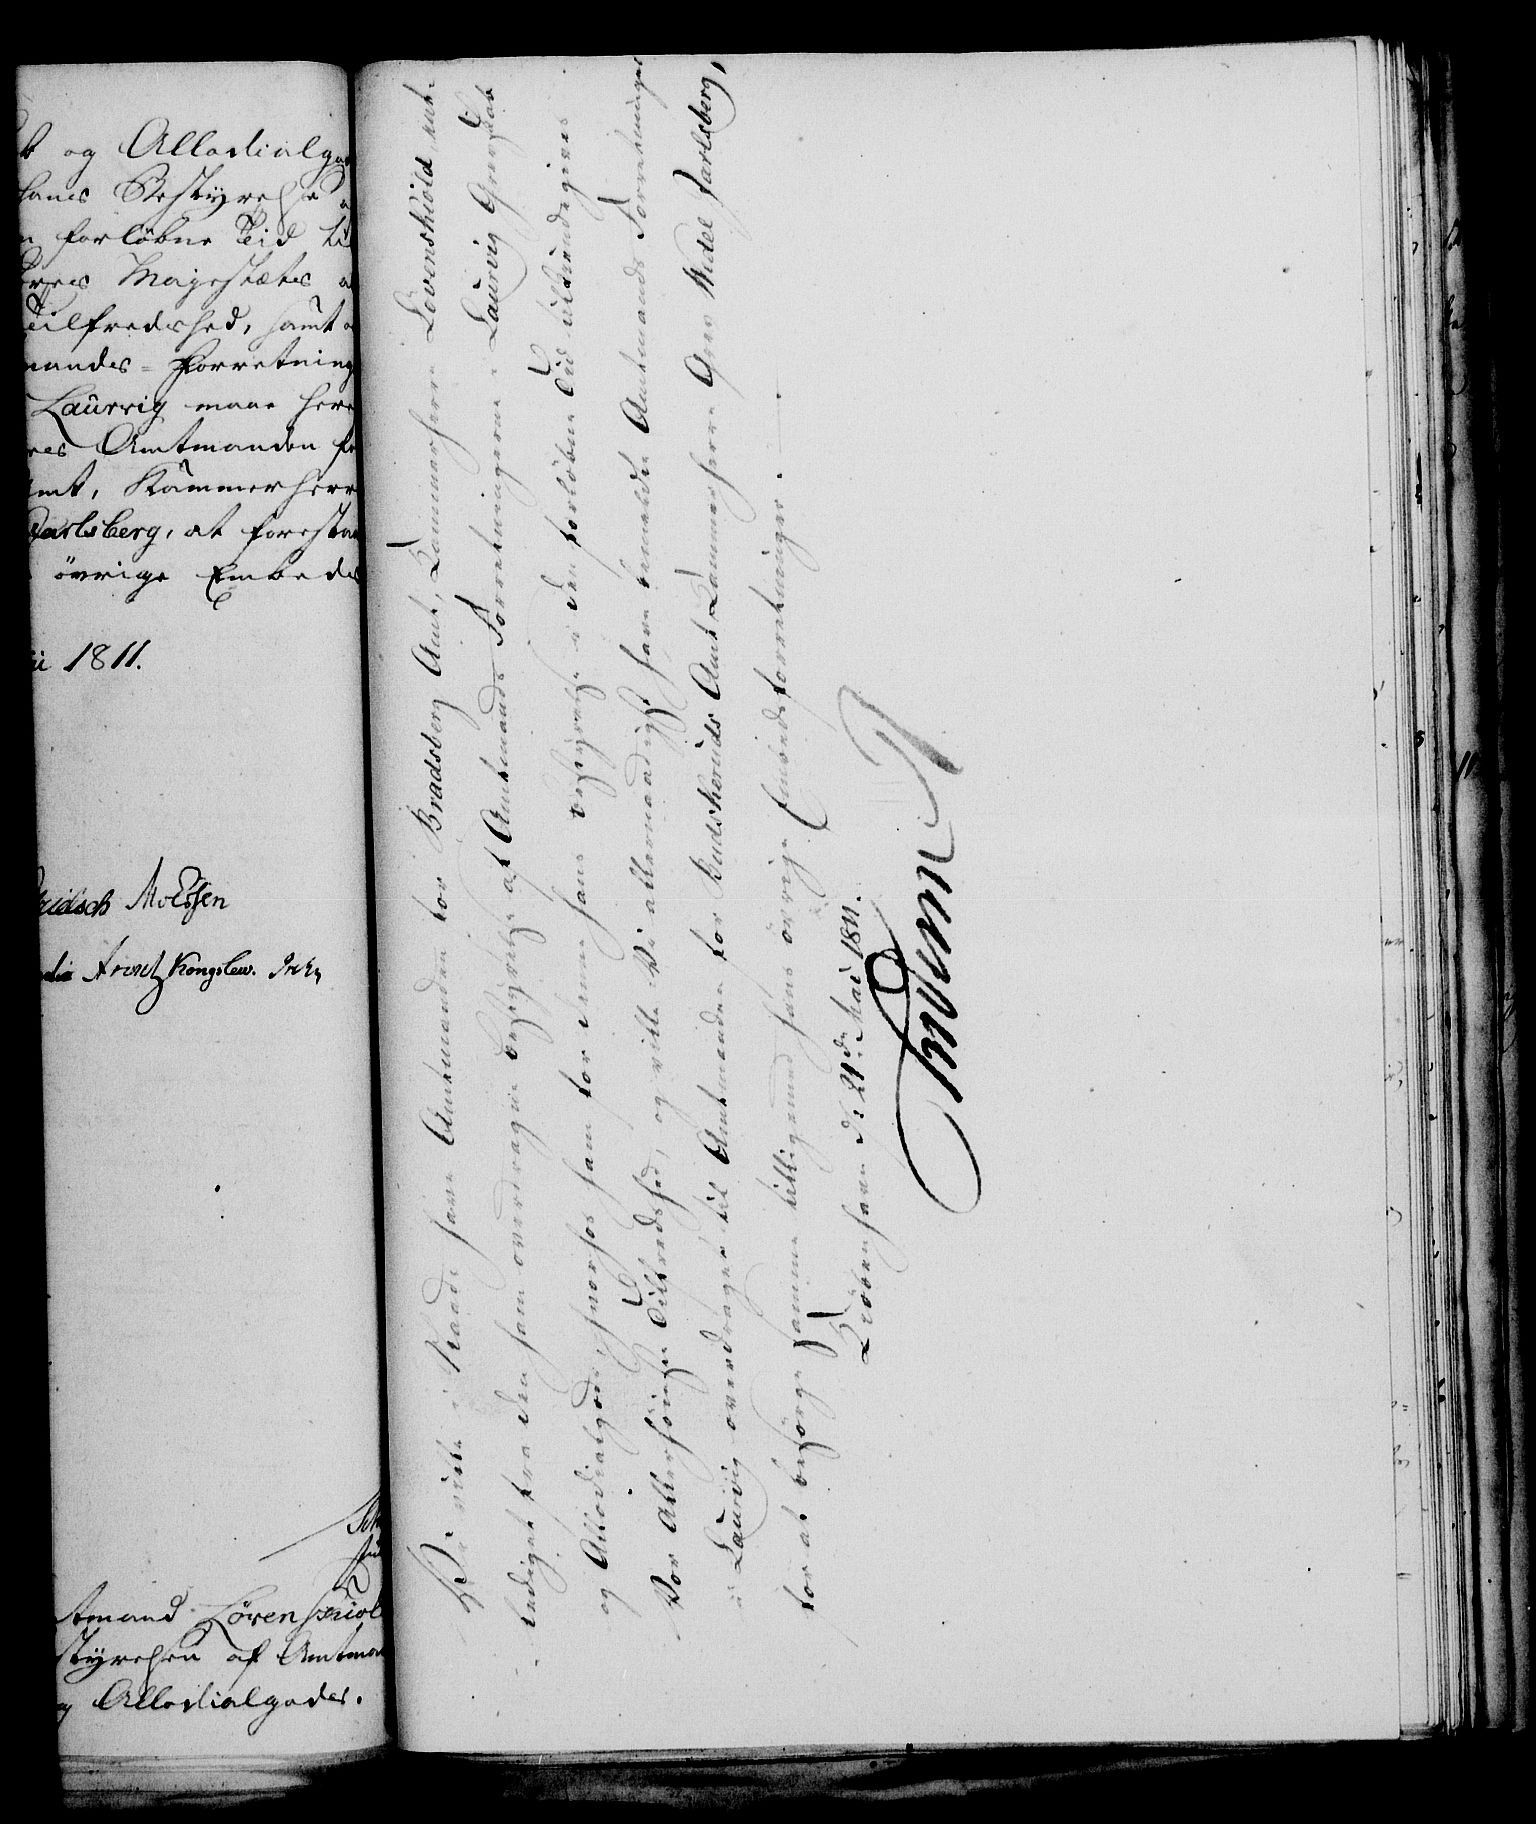 og Allodialgod
hans Bestyrelse
forløbne Tid til
Majestætes
Tilfredshed, samt
mandes-Forretning
Laurvig maae her
Amtmanden for
Amt, Kammerherre
Jarlsberg, at forestaae
övrige Embeds
1811.
Moltsen
Arentz Kongslew.
Amtmand Lövenskiold
styrelsen af Amtman
og Allodialgodes.
Vi ville i Naade have Amtmanden for Bradsberg Amt, Kammerherre Lövenskiold, ent-
lediget fra den ham overdragne Bestyrelse af Amtmands Forretningerne i Laurvig Grevskab
og Allodialgods, hvorhos ham for denne hans Bestyrelse i den forløbne Tid tilkiendegives
Vor Allerhöieste Tilfredshed, og ville Vi allernaadigst have bemeldte Amtmands Forretninger
i Laurvig overdragen til Amtmanden for Buskeruds Amt Kammerherre Grev Wedel Jarlsberg,
for at besörge samme tilligemed hans övrige Embedsforretninger.
Kiöbenhavn d: 21de Mai 1811.
Frederik R